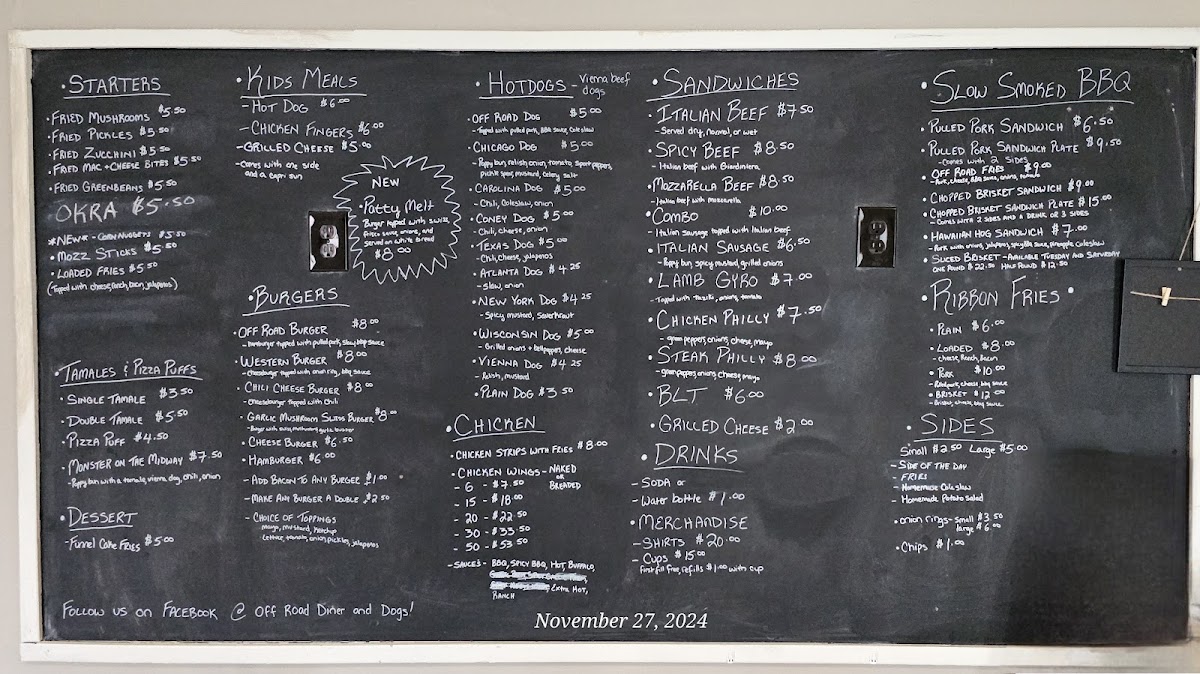 • STARTERS
• FRIED MUSHROOMS $5.50
• FRIED PICKLES $5.50
• FRIED ZUCCHINI $5.50
• FRIED MAC + CHEESE BITES $5.50
• FRIED GREENBEANS $5.50
OKRA $5.50
*NEW* - CORN NUGGETS $5.50
• MOZZ STICKS $5.50
• LOADED FRIES $5.50
(Topped with cheese, ranch, bacon, jalapenos)
• TAMALES & PIZZA PUFFS
• SINGLE TAMALE $3.50
• DOUBLE TAMALE $5.50
• PIZZA PUFF $4.50
• MONSTER ON THE MIDWAY $7.50
- Poppy bun with a tamale, vienna dog, chili, onion
• DESSERT
- Funnel Cake FRIES $5.00
FOLLOW US ON FACEBOOK @ OFF ROAD DINER AND DOGS!
• KIDS MEALS
- HOT DOG $6.00
- CHICKEN FINGERS $6.00
- GRILLED CHEESE $5.00
- Comes with one side
and a capri sun
NEW
• Patty Melt
Burger topped with swiss,
frisco sauce, onions, and
served on white bread
$8.00
• BURGERS
• OFF ROAD BURGER $8.00
- Hamburger topped with pulled pork, slaw, bbq sauce
• WESTERN BURGER $8.00
- Cheeseburger topped with onion ring, bbq sauce
• CHILI CHEESE BURGER $8.00
- Cheeseburger topped with Chili
• GARLIC MUSHROOM SWISS BURGER $8.00
• CHEESE BURGER $6.50
• HAMBURGER $6.00
- ADD BACON TO ANY BURGER $1.00
- MAKE ANY BURGER A DOUBLE $2.50
- CHOICE OF TOPPINGS
mayo, mustard, ketchup
Lettuce, tomato, onion, pickles, jalapenos
• HOTDOGS - Vienna beef
dogs
• OFF ROAD DOG $5.00
- Topped with pulled pork, BBQ sauce, Cole slaw
• CHICAGO DOG $5.00
- Poppy bun, relish, onion, tomato, sport peppers,
pickle spear, mustard, celery salt
• CAROLINA DOG $5.00
- Chili, Coleslaw, onion
• CONEY DOG $5.00
- Chili, cheese, onion
• TEXAS DOG $5.00
- Chili, cheese, jalapenos
• ATLANTA DOG $4.25
- Slaw, onion
• NEW YORK DOG $4.25
- Spicy mustard, Sauerkraut
• WISCONSIN DOG $5.00
- Grilled onions + bellpeppers, cheese
• VIENNA DOG $4.25
- Relish, mustard
• PLAIN DOG $3.50
• CHICKEN
• CHICKEN STRIPS WITH FRIES $8.00
• CHICKEN WINGS - NAKED
OR
BREADED
- 6 - $7.50
- 15 - $18.00
- 20 - $22.50
- 30 - $33.50
- 50 - $53.50
- SAUCES - BBQ, SPICY BBQ, HOT, BUFFALO,
EXTRA HOT,
RANCH
• SANDWICHES
• ITALIAN BEEF $7.50
- Served dry, normal, or wet
• SPICY BEEF $8.50
- Italian beef with Giardiniera
• MOZZARELLA BEEF $8.50
- Italian beef with mozzarella
• COMBO $10.00
- Italian sausage topped with Italian beef
• ITALIAN SAUSAGE $6.50
- Poppy bun, spicy mustard, grilled onions
• LAMB GYRO $7.00
- Topped with Tzaziki, onions, tomato
• CHICKEN PHILLY $7.50
- green peppers, onions, cheese, mayo
• STEAK PHILLY $8.00
- green peppers, onions, cheese, mayo
• BLT $6.00
• GRILLED CHEESE $2.00
• DRINKS
- SODA or
- Water bottle $1.00
• MERCHANDISE
- SHIRTS $20.00
- CUPS $15.00
First fill free, refills $1.00 with cup
• SLOW SMOKED BBQ
• PULLED PORK SANDWICH $6.50
• PULLED PORK SANDWICH PLATE $9.50
- Comes with 2 SIDES
• OFF ROAD FRIES $9.00
- Pork, cheese, BBQ sauce, onions, tomato
• CHOPPED BRISKET SANDWICH $9.00
• CHOPPED BRISKET SANDWICH PLATE $15.00
- COMES WITH 2 SIDES AND A DRINK OR 3 SIDES
• HAWAIIAN HOG SANDWICH $7.00
- Pork with onions, jalapenos, spicy BBQ sauce, pineapple coleslaw
• SLICED BRISKET - AVAILABLE TUESDAY AND SATURDAY
ONE POUND $22.50 HALF POUND $12.50
• RIBBON FRIES •
• PLAIN $6.00
• LOADED $8.00
- cheese, Ranch, Bacon
• PORK $10.00
- Pulled pork, cheese, bbq sauce
• BRISKET $12.00
- Brisket, cheese, bbq sauce
• SIDES
Small $2.50 Large $5.00
- SIDE OF THE DAY
- FRIES
- Homemade Coleslaw
- Homemade Potato Salad
• onion rings - small $3.50
large $6.00
• Chips $1.00
November 27, 2024